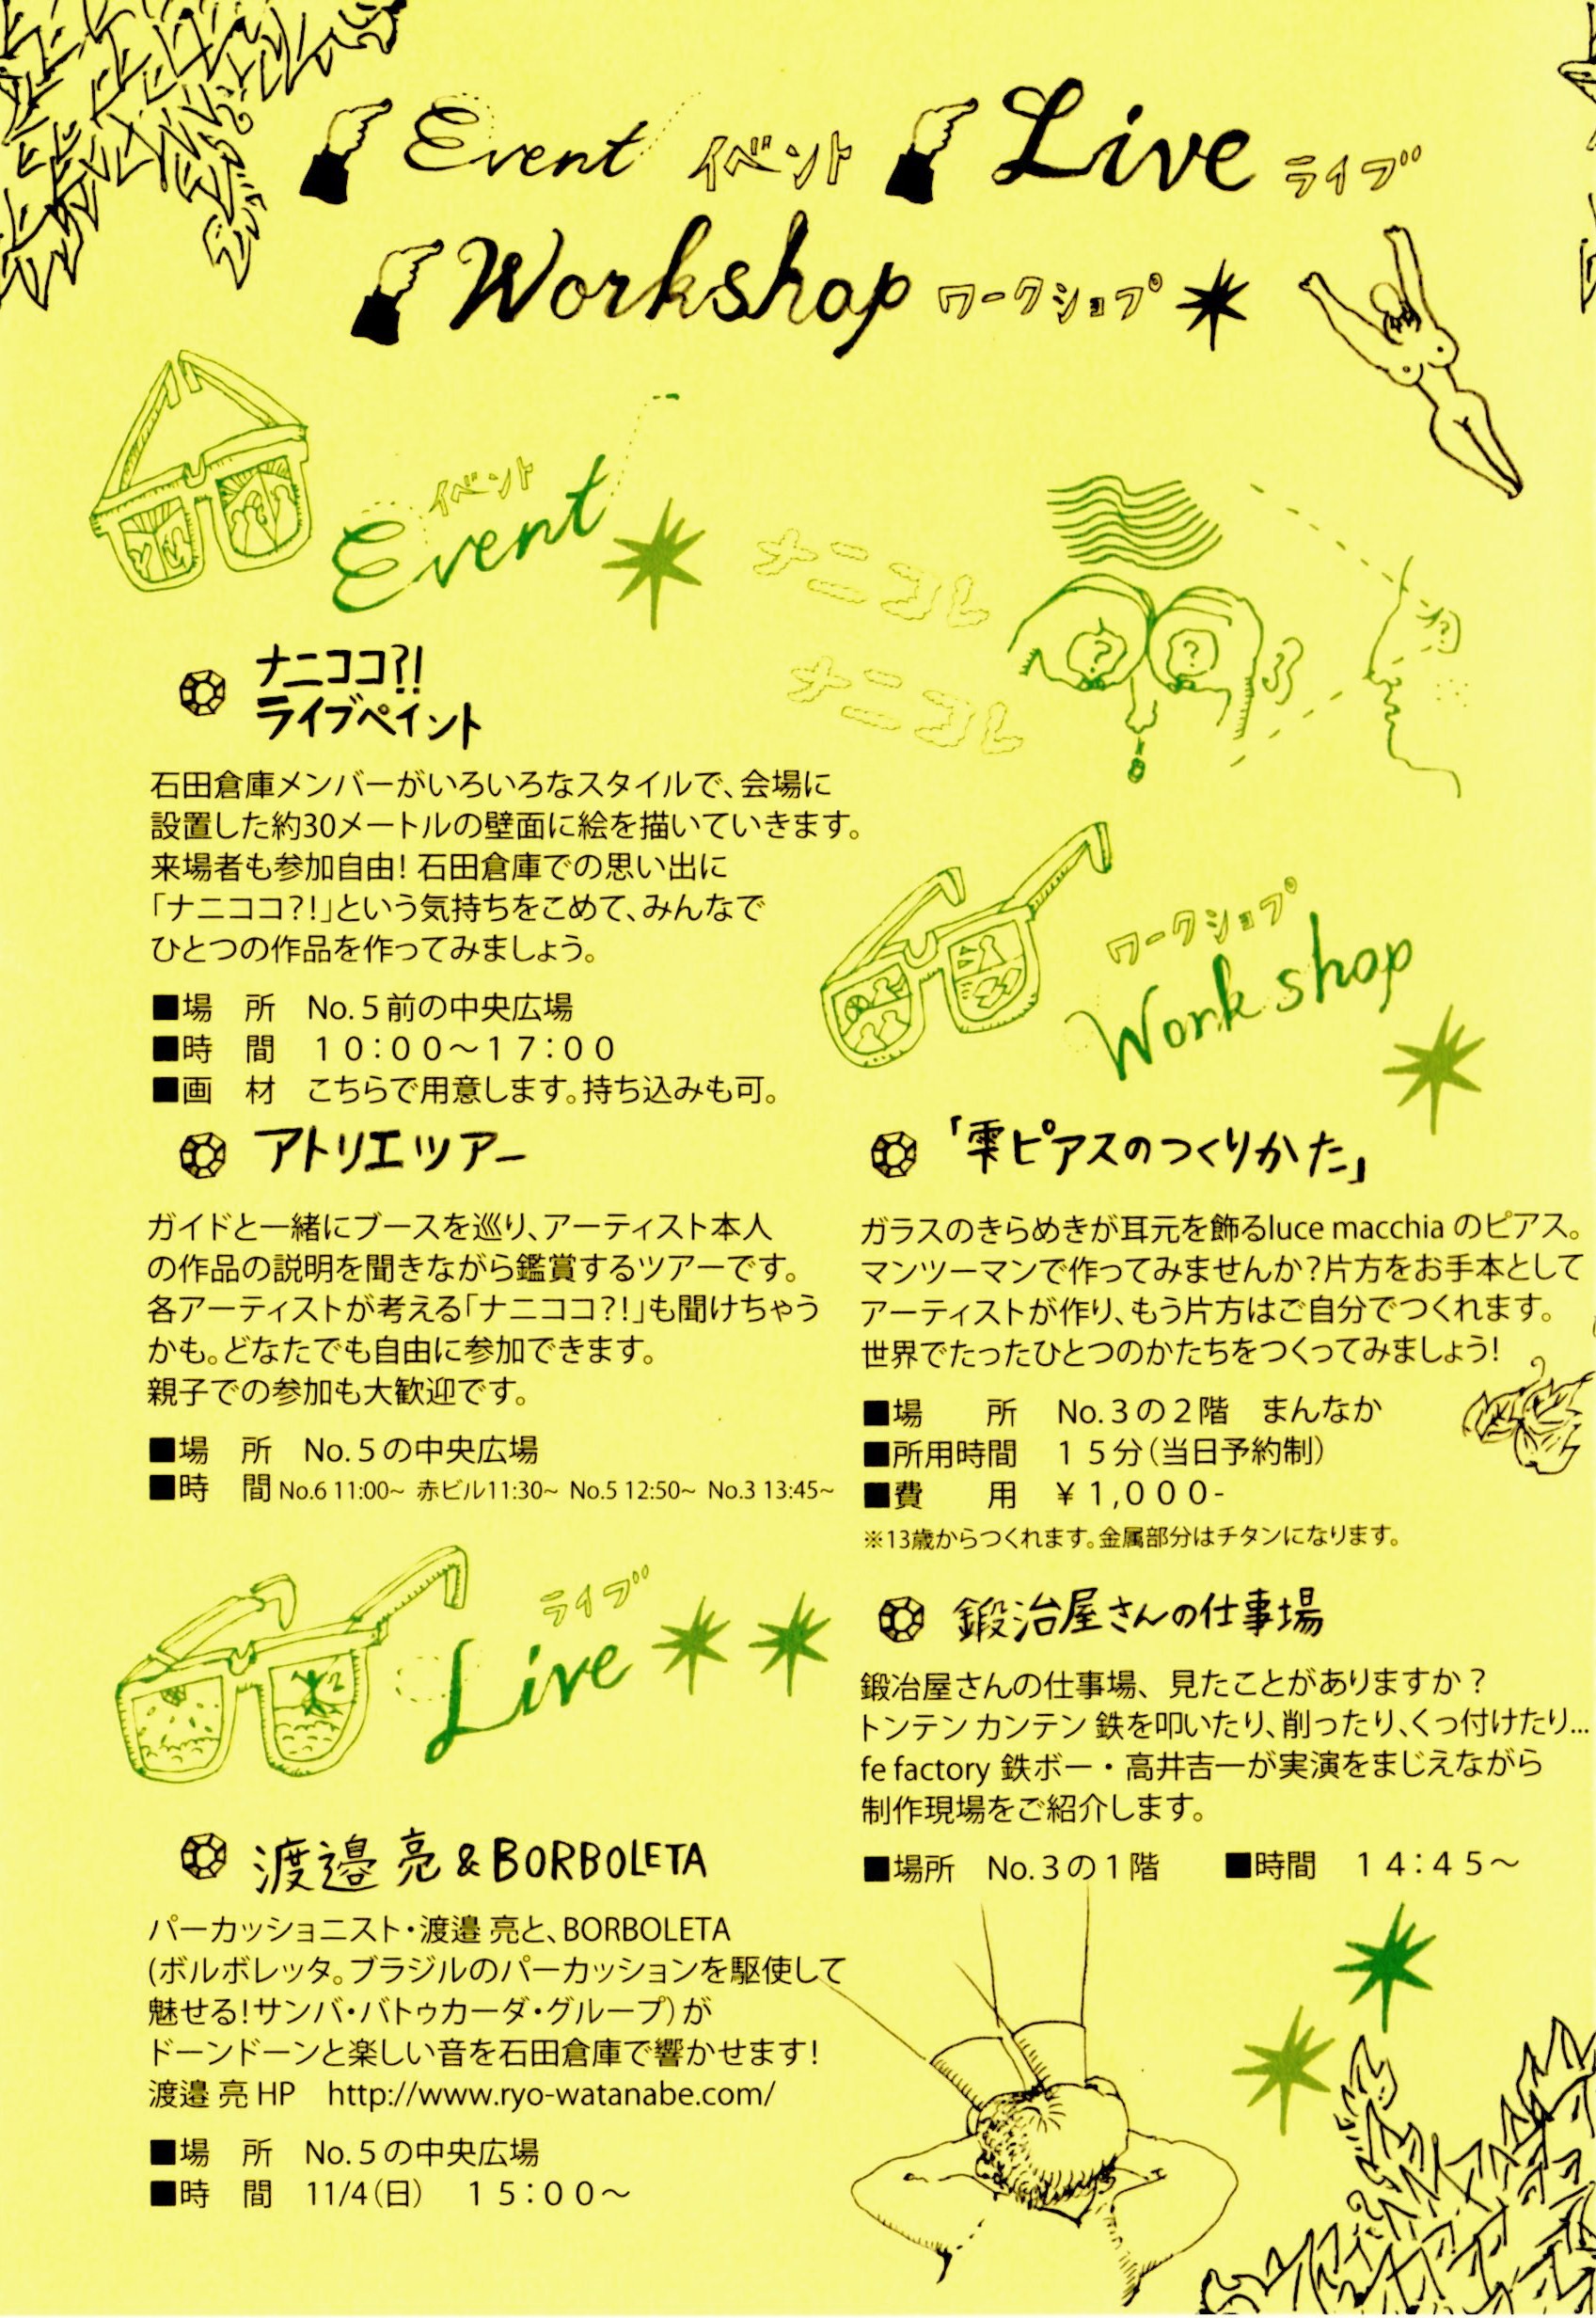 Event イベント Live ライブ
Workshop ワークショプ
イベント
Event
ナニココ?!
ライブペイント
石田倉庫メンバーがいろいろなスタイルで、会場に
設置した約30メートルの壁面に絵を描いていきます。
来場者も参加自由！石田倉庫での思い出に
「ナニココ？！」という気持ちをこめて、みんなで
ひとつの作品を作ってみましょう。
■場　所　No.５前の中央広場
■時　間　１０：００～１７：００
■画　材　こちらで用意します。持ち込みも可。
アトリエツアー
ガイドと一緒にブースを巡り、アーティスト本人
の作品の説明を聞きながら鑑賞するツアーです。
各アーティストが考える「ナニココ？！」も聞けちゃう
かも。どなたでも自由に参加できます。
親子での参加も大歓迎です。
■場　所　No.５の中央広場
■時　間 No.6 11:00~ 赤ビル11:30~ No.5 12:50~ No.3 13:45~
ライブ
Live
渡邉 亮 & BORBOLETA
パーカッショニスト・渡邉 亮と、BORBOLETA
(ボルボレッタ。ブラジルのパーカッションを駆使して
魅せる！サンバ・バトゥカーダ・グループ）が
ドーンドーンと楽しい音を石田倉庫で響かせます！
渡邉 亮 HP　http://www.ryo-watanabe.com/
■場　所　No.５の中央広場
■時　間　11/4（日）　１５：００～
ナニコレ
ナニコレ
?
?
ワークショプ
Workshop
「雫ピアスのつくりかた」
ガラスのきらめきが耳元を飾るluce macchia のピアス。
マンツーマンで作ってみませんか？片方をお手本として
アーティストが作り、もう片方はご自分でつくれます。
世界でたったひとつのかたちをつくってみましょう！
■場　　所　No.３の２階　まんなか
■所用時間　１５分（当日予約制）
■費　　用　￥１,０００-
※13歳からつくれます。金属部分はチタンになります。
鍛冶屋さんの仕事場
鍛冶屋さんの仕事場、見たことがありますか？
トンテン カンテン 鉄を叩いたり、削ったり、くっ付けたり...
fe factory 鉄ボー・高井吉一が実演をまじえながら
制作現場をご紹介します。
■場所　No.３の１階　　■時間　１４：４５～